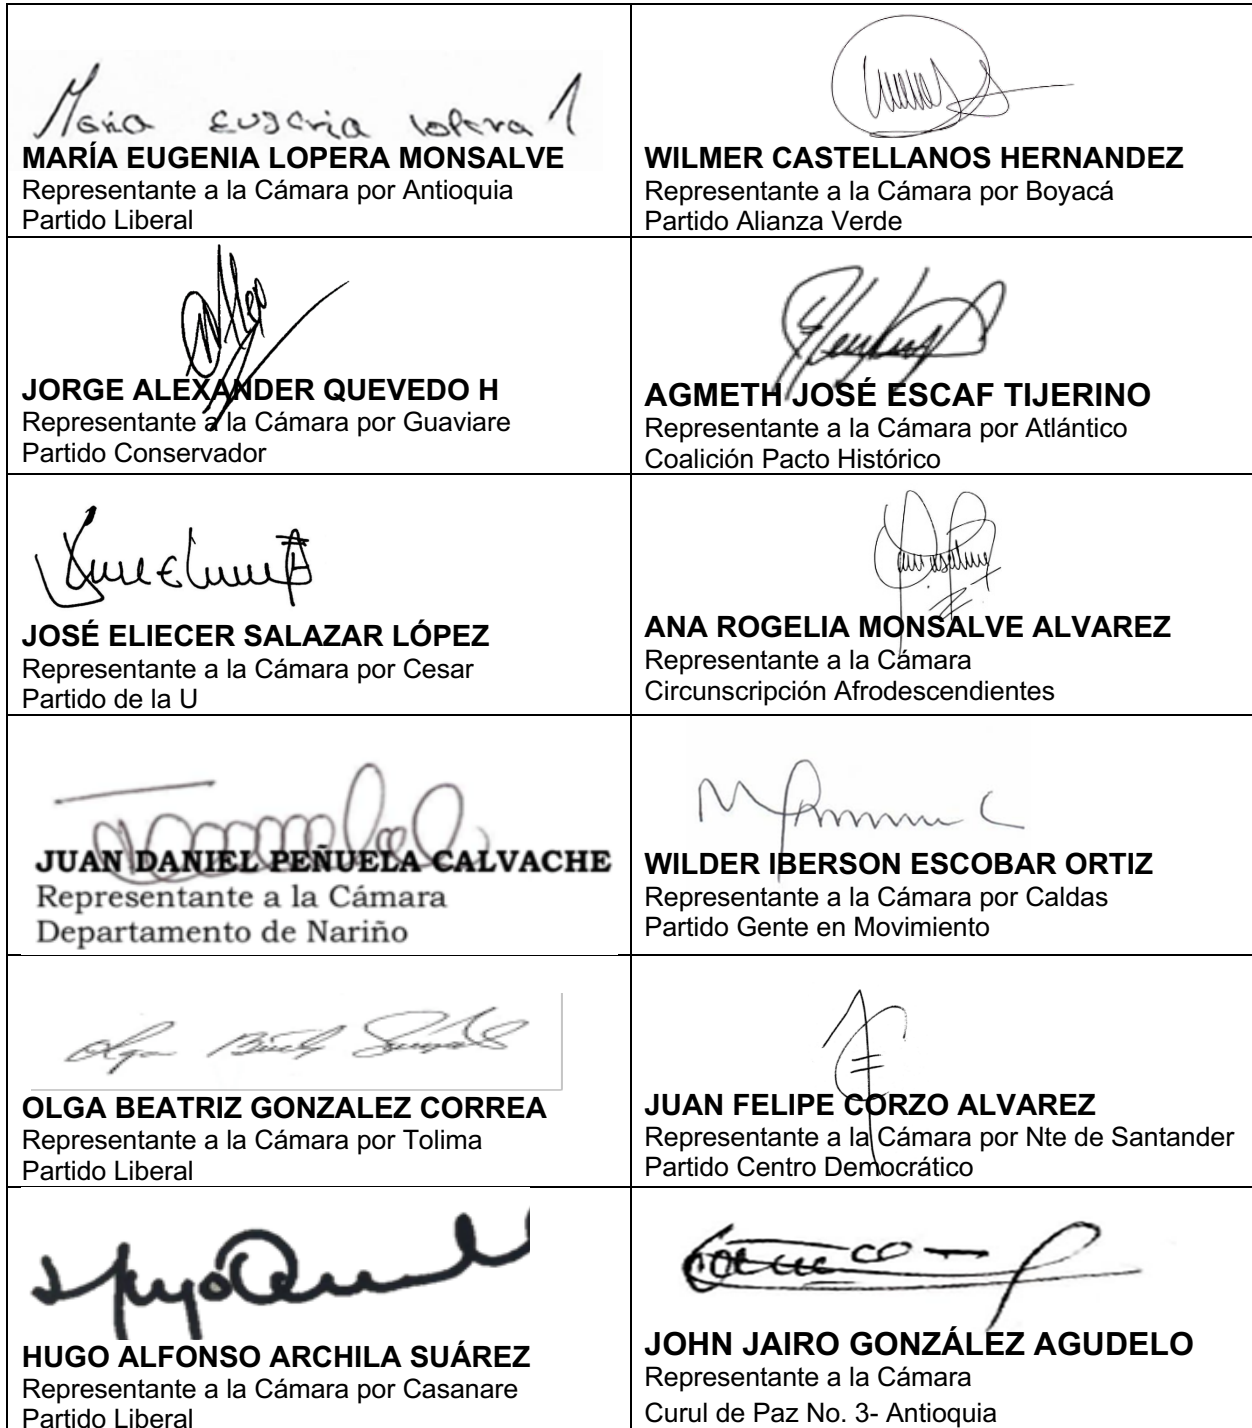 Maria Eugenia Lopera
MARÍA EUGENIA LOPERA MONSALVE
Representante a la Cámara por Antioquia
Partido Liberal
WILMER CASTELLANOS HERNANDEZ
Representante a la Cámara por Boyacá
Partido Alianza Verde
JORGE ALEXANDER QUEVEDO H
Representante a la Cámara por Guaviare
Partido Conservador
AGMETH JOSÉ ESCAF TIJERINO
Representante a la Cámara por Atlántico
Coalición Pacto Histórico
JOSÉ ELIECER SALAZAR LÓPEZ
Representante a la Cámara por Cesar
Partido de la U
ANA ROGELIA MONSALVE ALVAREZ
Representante a la Cámara
Circunscripción Afrodescendientes
JUAN DANIEL PEÑUELA CALVACHE
Representante a la Cámara
Departamento de Nariño
WILDER IBERSON ESCOBAR ORTIZ
Representante a la Cámara por Caldas
Partido Gente en Movimiento
OLGA BEATRIZ GONZALEZ CORREA
Representante a la Cámara por Tolima
Partido Liberal
JUAN FELIPE CORZO ALVAREZ
Representante a la Cámara por Nte de Santander
Partido Centro Democrático
HUGO ALFONSO ARCHILA SUÁREZ
Representante a la Cámara por Casanare
Partido Liberal
JOHN JAIRO GONZÁLEZ AGUDELO
Representante a la Cámara
Curul de Paz No. 3- Antioquia